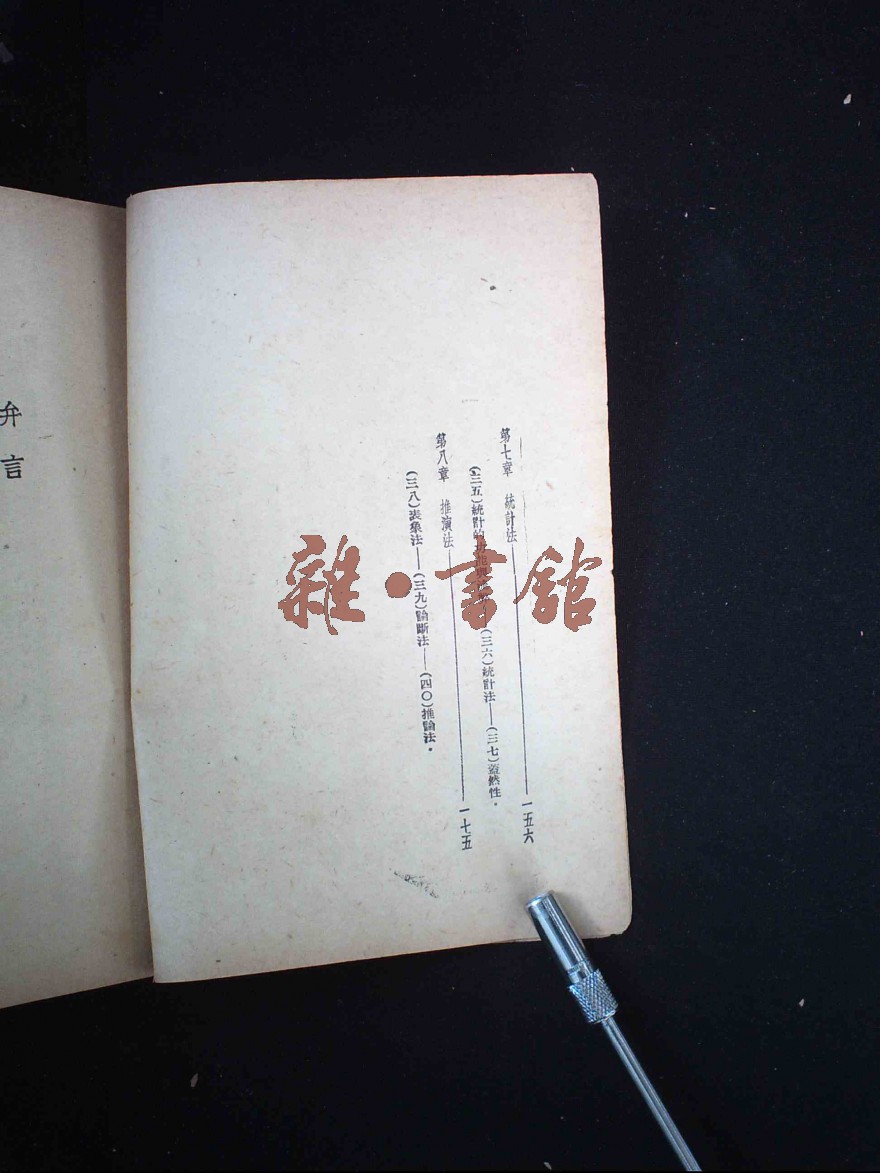 第七章　統計法——一五六
(三五)統計的——(三六)統計法——(三七)蓋然性．
第八章　推演法——一七五
(三八)表象法——(三九)論斷法——(四〇)推論法．
弁言
雜·書館